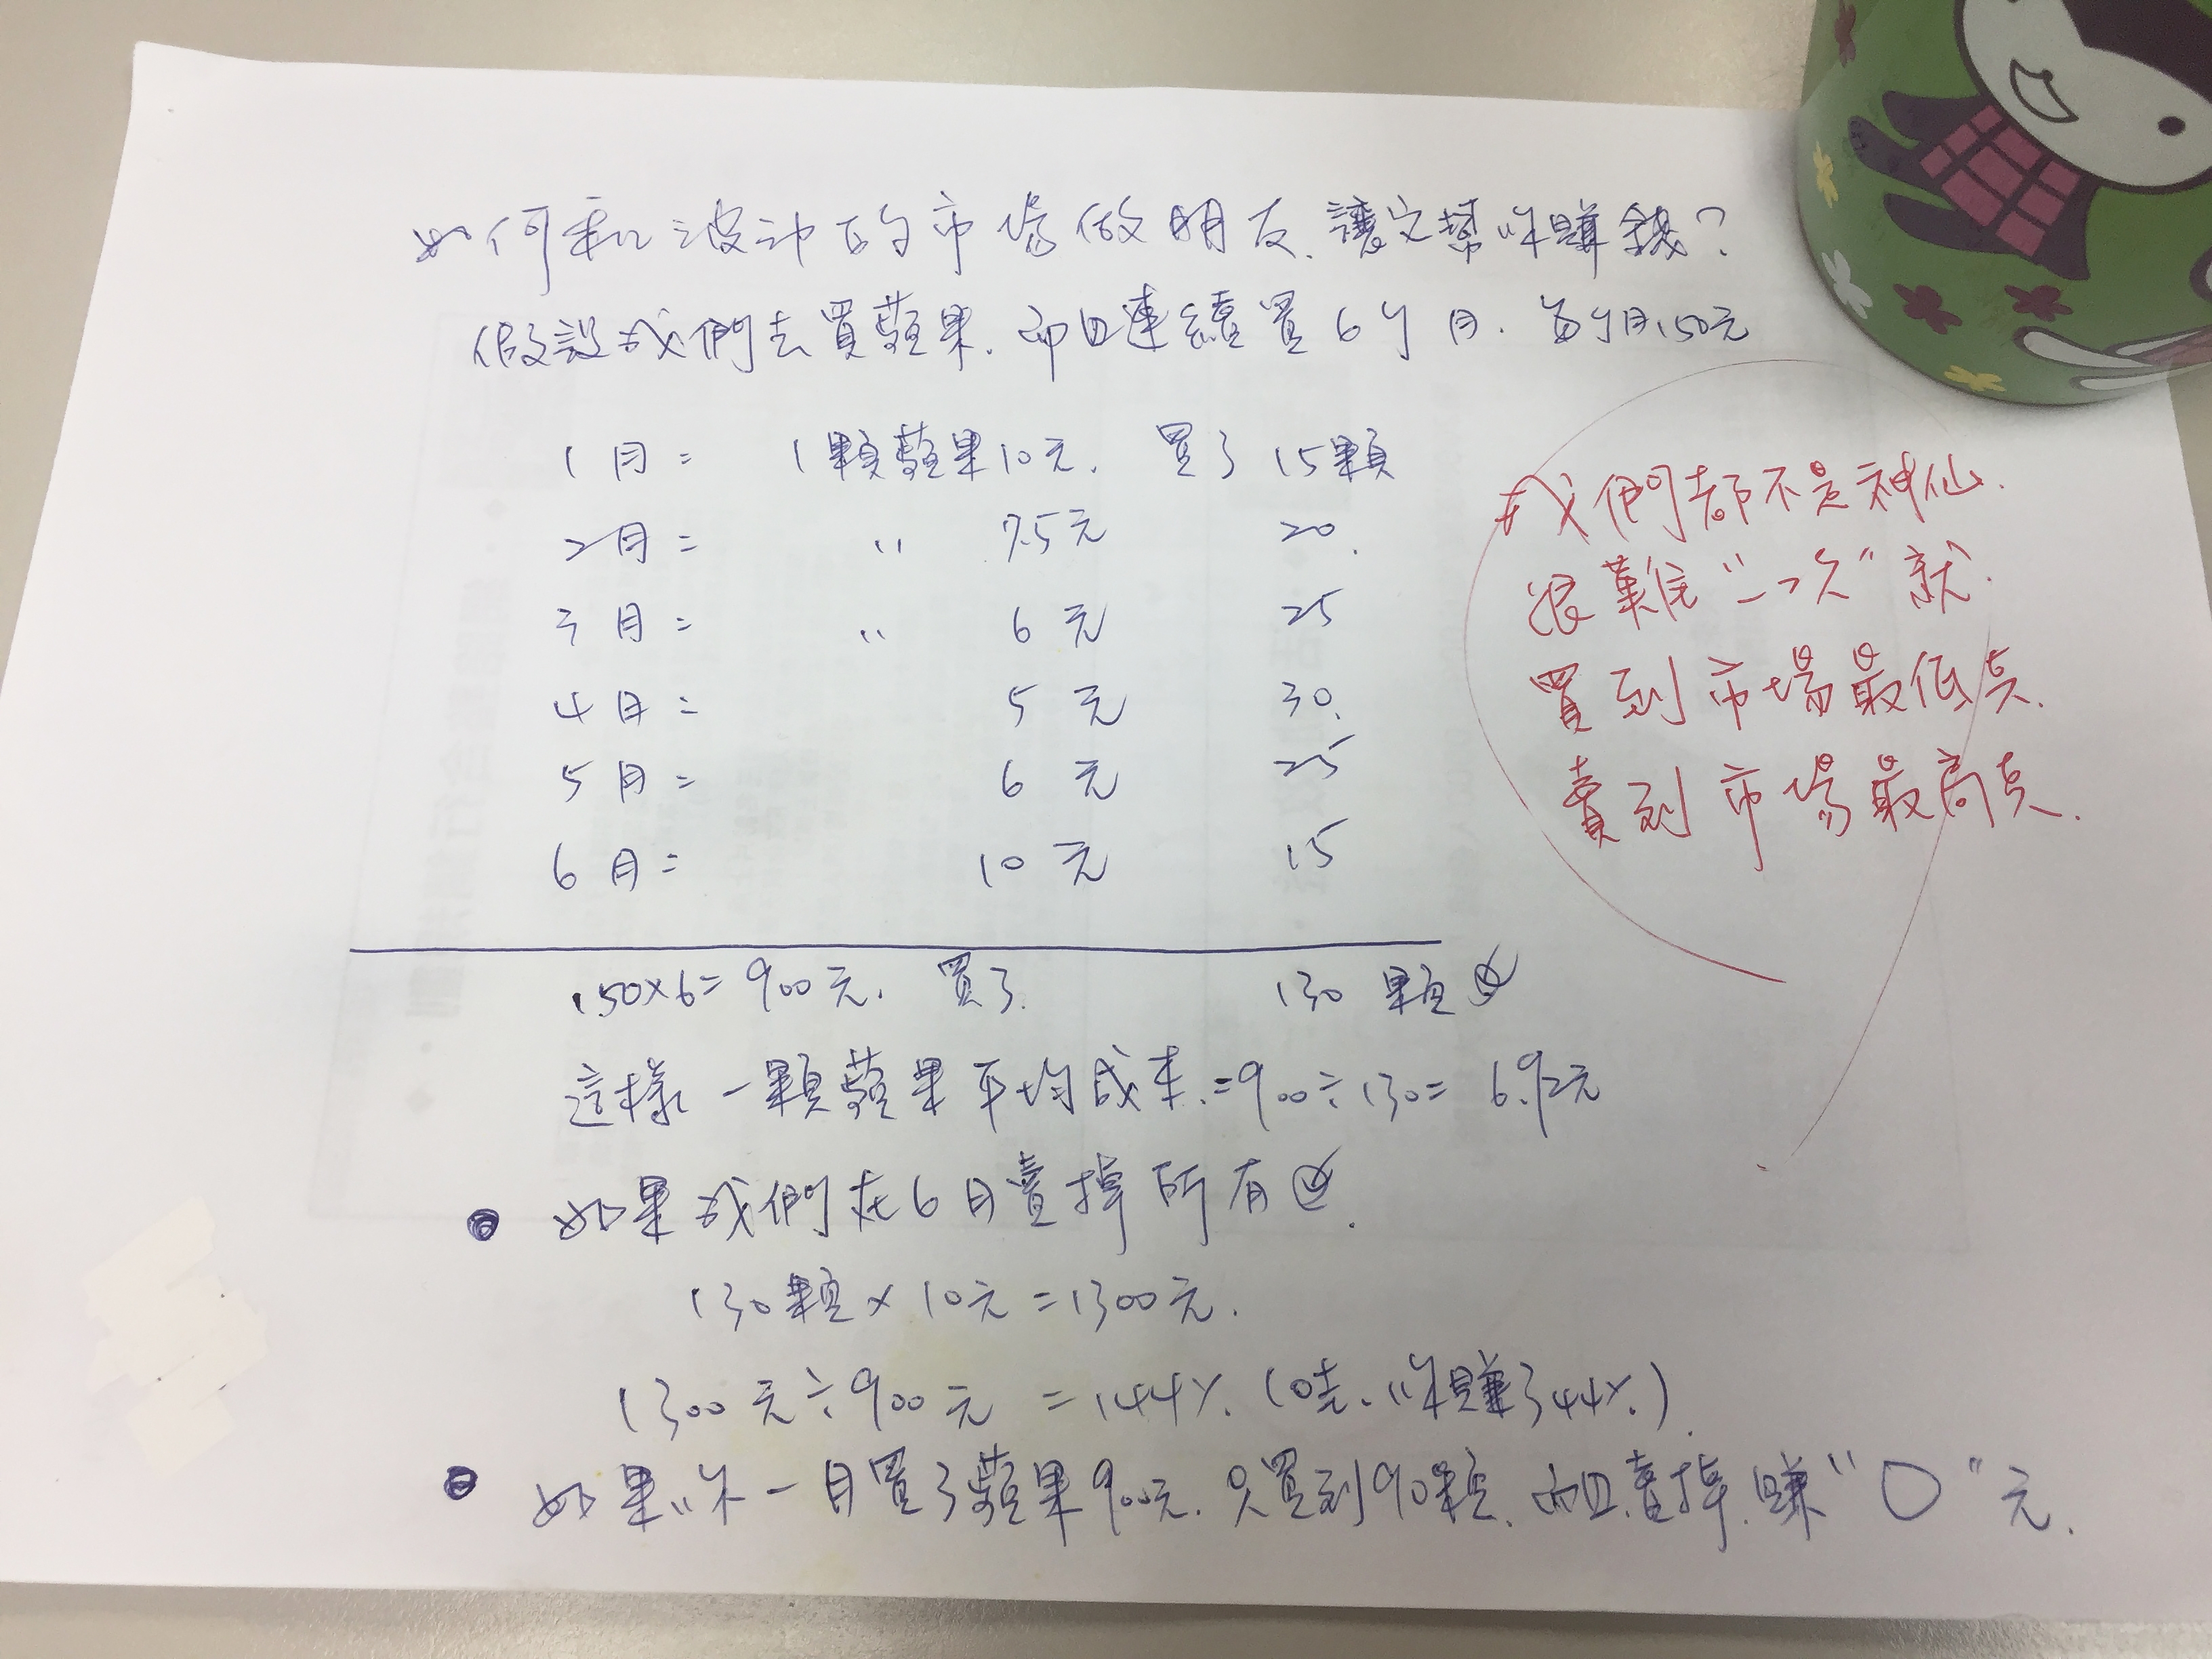 如何和波动的市場做朋友、讓它幫你賺錢？
假設我們去買蘋果、而且連續買6个月、每个月150元
1月= 1顆蘋果10元、買了15顆
2月= " 7.5元 20
3月= " 6元 25
4月= 5元 30
5月= 6元 25
6月= 10元 15
150×6=900元、買了 130顆
這樣一顆蘋果平均成本=900÷130=6.92元
● 如果我們在6月賣掉所有
130顆×10元=1300元
1300元÷900元=144% (哇、你賺了44%)
● 如果你一月買了蘋果900元、只買到90顆、而且賣掉、賺"0"元
我們都不是神仙
很難"一次"就
買到市場最低点
賣到市場最高点